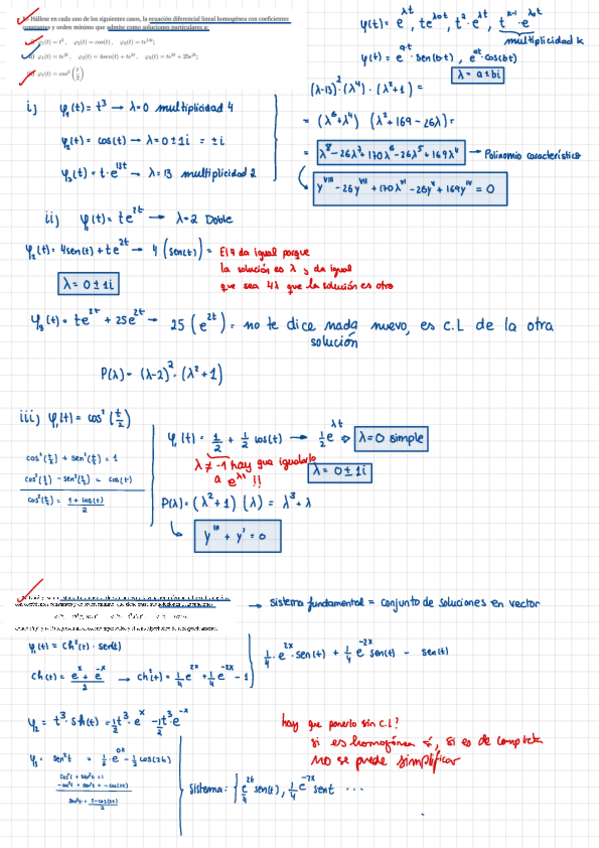 1. Hállese en cada uno de los siguientes casos, la ecuación diferencial lineal homogénea con coeficientes
constantes y orden mínimo que admite como soluciones particulares a:
i) φ₁(t) = t³, φ₂(t) = cos(t), φ₃(t) = te^{13t};
ii) φ₁(t) = te^{2t}, φ₂(t) = 4sen(t) + te^{2t}, φ₃(t) = te^{2t} + 25e^{2t};
φ₁(t) = cos²(t/2)
φ(t) = e^{λt}, te^{λ₀t}, t²·e^{λt}, t^{k-1}·e^{λ₀t}
multiplicidad k
φ(t) = e^{at}·sen(b·t), e^{at}·cos(bt)
λ = a±bi
i) φ₁(t) = t³ → λ=0 multiplicidad 4
φ₂(t) = cos(t) → λ=0±1i = ±i
φ₃(t) = t·e^{13t} → λ=13 multiplicidad 2
(λ-13)²·(λ⁴)·(λ²+1) =
= (λ⁶+λ⁴) (λ²+169-26λ) =
= λ⁸-26λ⁷+170λ⁶-26λ⁵+169λ⁴ → Polinomio característico
ii) φ(t) = te^{2t} → λ=2 Doble
φ₂(t) = 4sen(t)+te^{2t} → 4(sen(t)) =
El 4 da igual porque
la solución es λ y da igual
que sea 4λ que la solución es otro
λ = 0±1i
φ₃(t) = te^{2t} + 25e^{2t} → 25(e^{2t}) = no te dice nada nuevo, es C.L de la otra
solución
P(λ) = (λ-2)²·(λ²+1)
iii) φ₁(t) = cos²(t/2)
cos²(t/2) + sen²(t/2) = 1
cos²(t/2) - sen²(t/2) = cos(t)
cos²(t/2) = 1+cos(t)/2
φ₁(t) = 1/2 + 1/2 cos(t) → 1/2 e^{λt} ⇒ λ=0 simple
λ≠1 hay que igualarlo
a e^{λt} !!
λ = 0±1i
P(λ) = (λ²+1) (λ) = λ³+λ
y''' + y' = 0
→ sistema fundamental = conjunto de soluciones en vector
φ₁(t) = ch²(t)·sen(t)
ch(t) = e^x + e^{-x}/2 → ch²(t) = 1/4 e^{2x} + 1/4 e^{-2x} - 1
1/4·e^{2x}·sen(t) + 1/4 e^{-2x} sen(t) - sen(t)
φ₂ = t³·sh(t) = 1/2 t³·e^x - 1/2 t³e^{-x}
hay que ponerlo sin C.L?
si es homogénea sí, si es de completa
no se puede simplificar
φ₃ = sen²t = 1/2·e^{0x} - 1/2 cos(2t)
Sistema: { e^{2t}/4 sen(t), 1/4 e^{-2x} sent ...